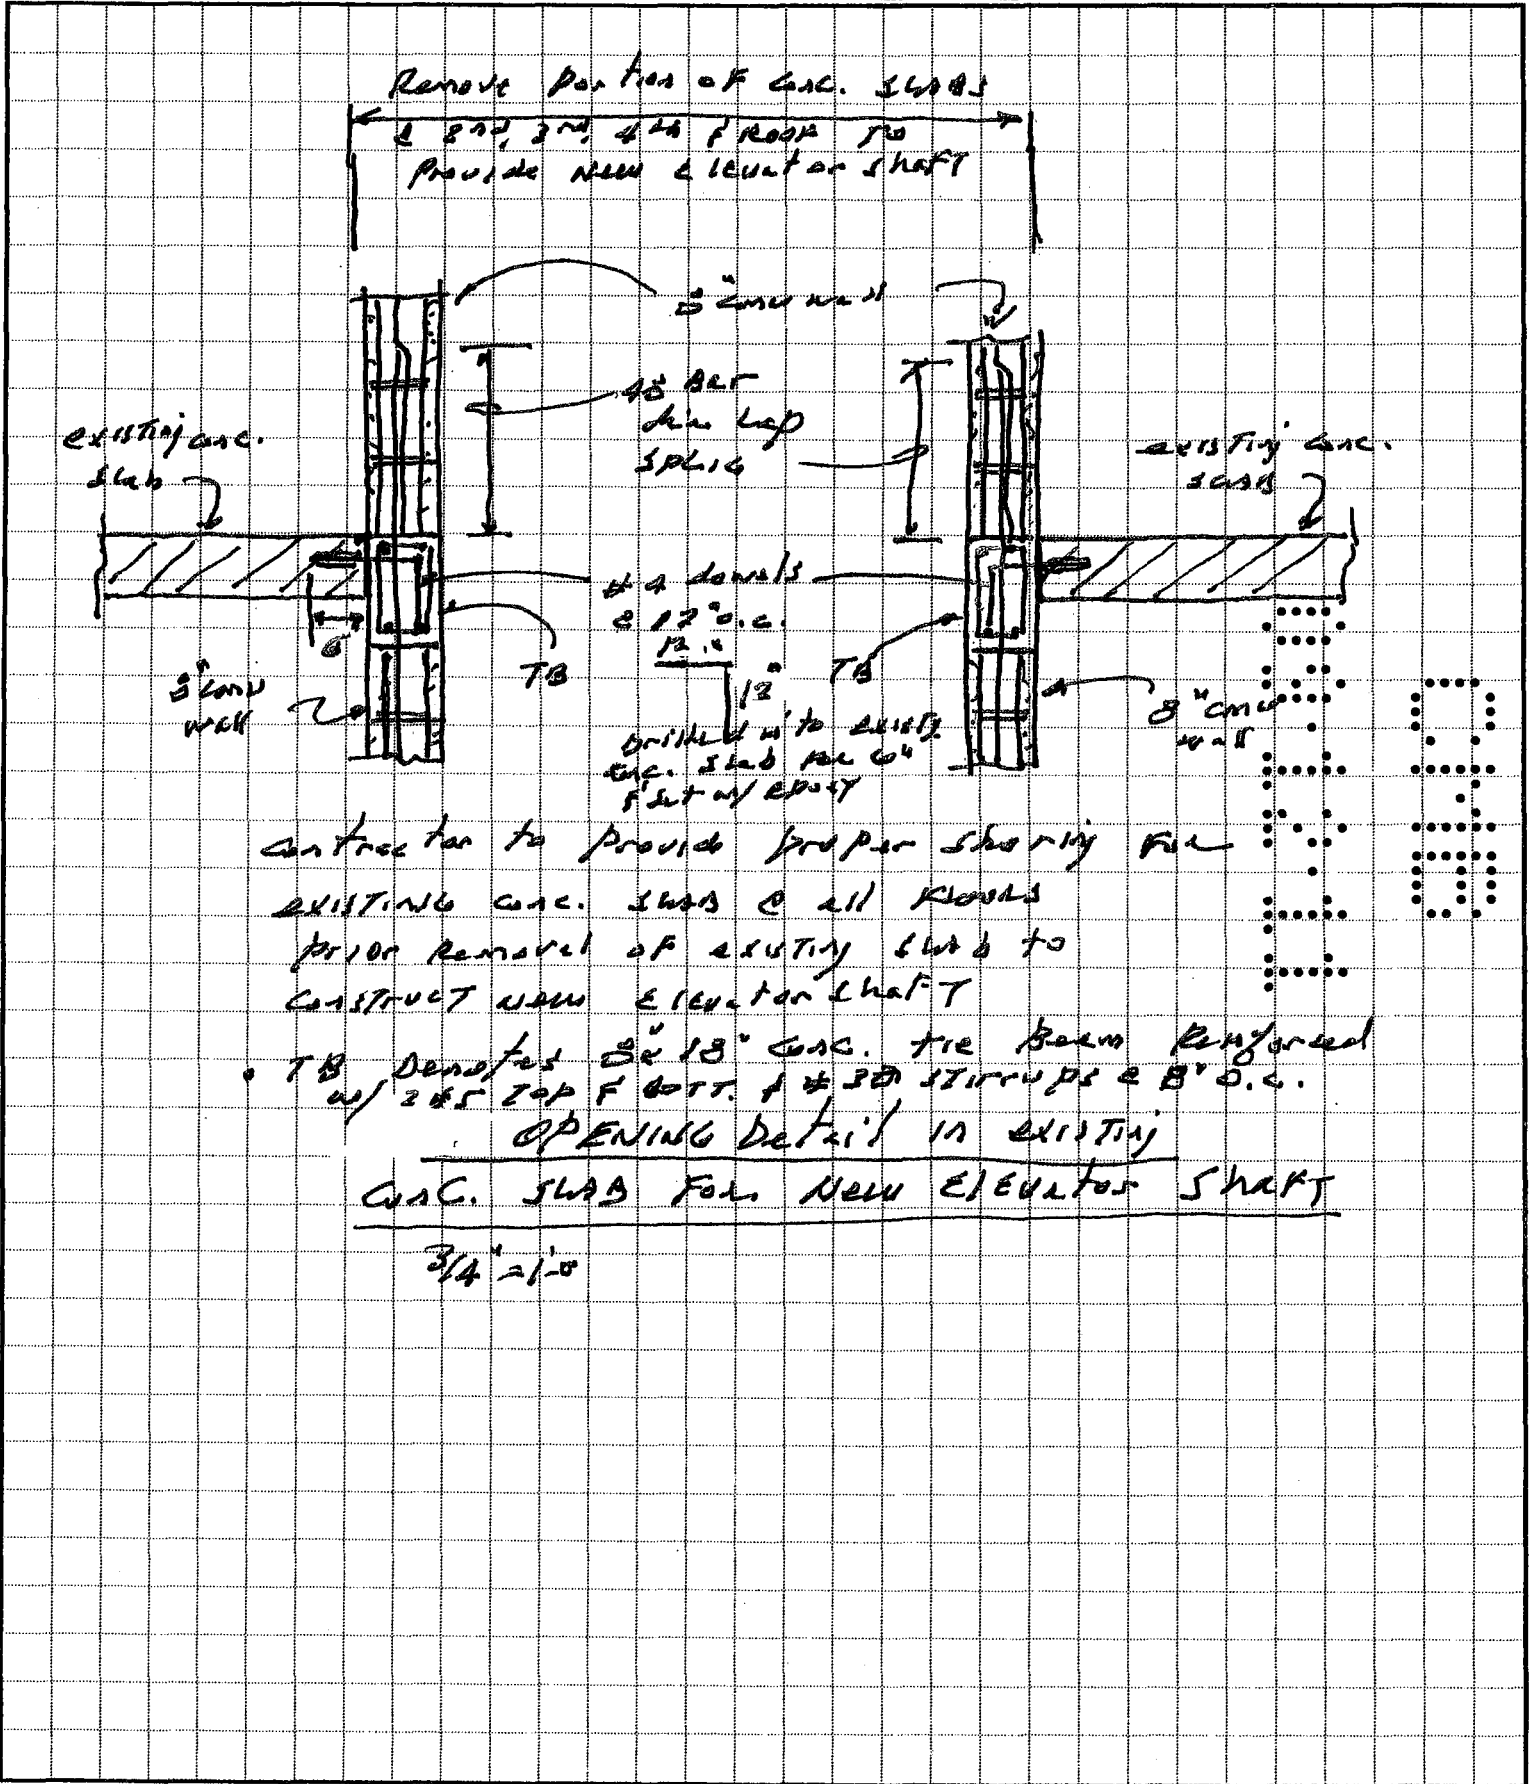 Remove Portion of Conc. SLABS
@ 2nd, 3rd, 4th & ROOF TO
Provide New Elevator Shaft
8" CMU wall
48 Bar
Min Lap
SPLICE
existing conc.
slab
existing conc.
SLAB
# 4 dowels
@ 12" o.c.
12"
12"
6"
TB
TB
8" CMU
wall
8" CMU
wall
Drilled into existg
conc. slab for 6"
& set w/ epoxy
Contractor to Provide proper shoring For
EXISTING conc. SLAB @ all Floors
prior Removal of existing slab to
CONSTRUCT New Elevator Shaft
• TB Denotes 8"x18" Conc. tie Beam Reinforced
w/ 2#5 Top & BOTT. & #3 STIRRUPS @ 8" O.C.
OPENING Detail in existing
Conc. SLAB For New Elevator Shaft
3/4" = 1'-0